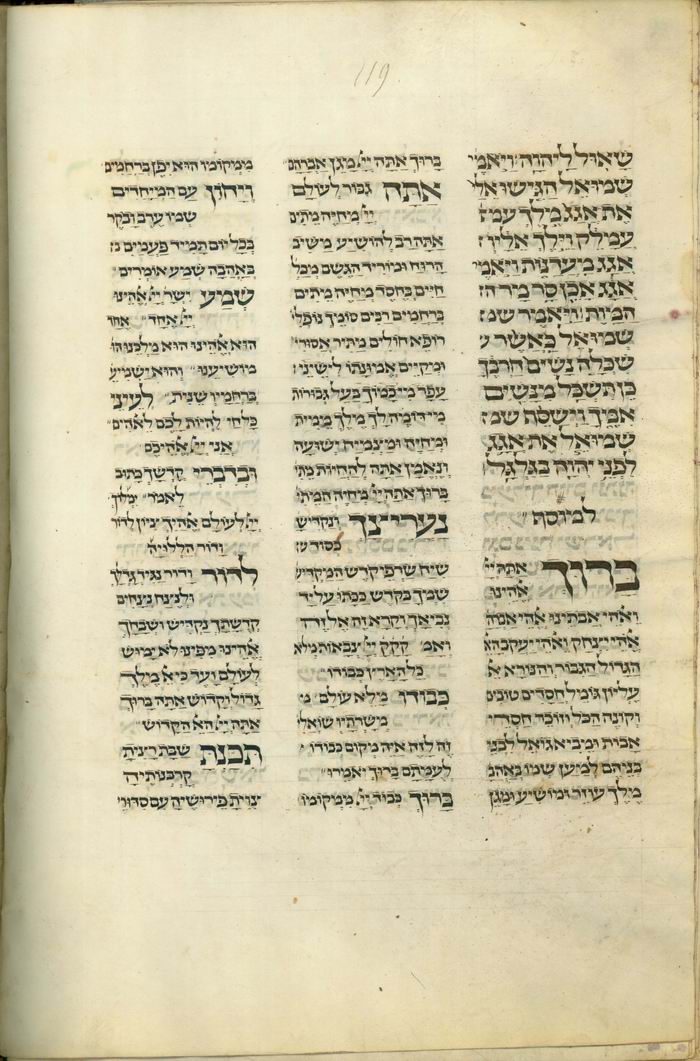 119
שאול ליהוה ויאמר
שמואל הגישו אלי
את אגג מלך עמ
עמלק וילך אליו
אגג מעדנות ויאמר
אגג אכן סר מר ה
המות ויאמר שמ
שמואל כאשר ע
שכלה נשים חרבך
כן תשכל מנשים
אמך וישסף שמ
שמואל את אגג
לפני יהוה בגלגל
למוסף
ברוך אתה ייי
אלהינו
ואלהי אבתינו אלהי אברהם
אלהי יצחק ואלהי יעקב הא
הגדול הגבור והנורא א
עליון גומל חסדים טובים
וקונה הכל וזוכר חסדי
אבות ומביא גואל לבני
בניהם למען שמו באהב
מלך עוזר ומושיע ומגן
ברוך אתה ייי מגן אברהם
אתה גבור לעולם
ייי מחיה מתים
אתה רב להושיע משיב
הרוח ומוריד הגשם מכל
חיים בחסד מחיה מתים
ברחמים רבים סומך נופלי
רופא חולים מתיר אסורי
ומקיים אמונתו לישיני
עפר מי כמוך בעל גבורות
מי דומה לך מלך ממית
ומחיה ומצמיח ישועה
ונאמן אתה להחיות מתי
ברוך אתה ייי מחיה המתי
נעריצך ונקדיש
כסוד ש
שיח שרפי קדש המקדיש
שמך בקדש ככתו על יד
נביאך וקרא זה אל זה
ואמ קקק ייי צבאות מלא
כל הארץ כבודו
כבודו מלא עולם מ
משרתיו שואלי
זה לזה איה מקום כבודו
לעמתם ברוך יאמרו
ברוך כבוד ייי ממקומו
ממקומו הוא יפן ברחמים
ויחון עם המיחדים
שמו ערב ובקר
בכל יום תמיד פעמים
באהבה שמע אומרים
שמע ישר ייי אלהינו
ייי אחד אחד
הוא אלהינו הוא מלכנו ה
מושיענו והוא ישמיע
ברחמיו שנית לעיני
כל חי להיות לכם לאלהים
אני ייי אלהיכם
ובדברי קדשך כתוב
לאמר ימלוך
ייי לעולם אלהיך ציון לדור
ודור הללויה
לדור ודור נגיד גדלך
ולנצח נצחים
קדשתך נקדיש ושבחך
אלהינו מפינו לא ימוש
לעולם ועד כי א מלך
גדול וקדוש אתה ברוך
אתה ייי הא הקדוש
תכנת שבת רצית
קרבנותיה
צוית פירושיה עם סדורי